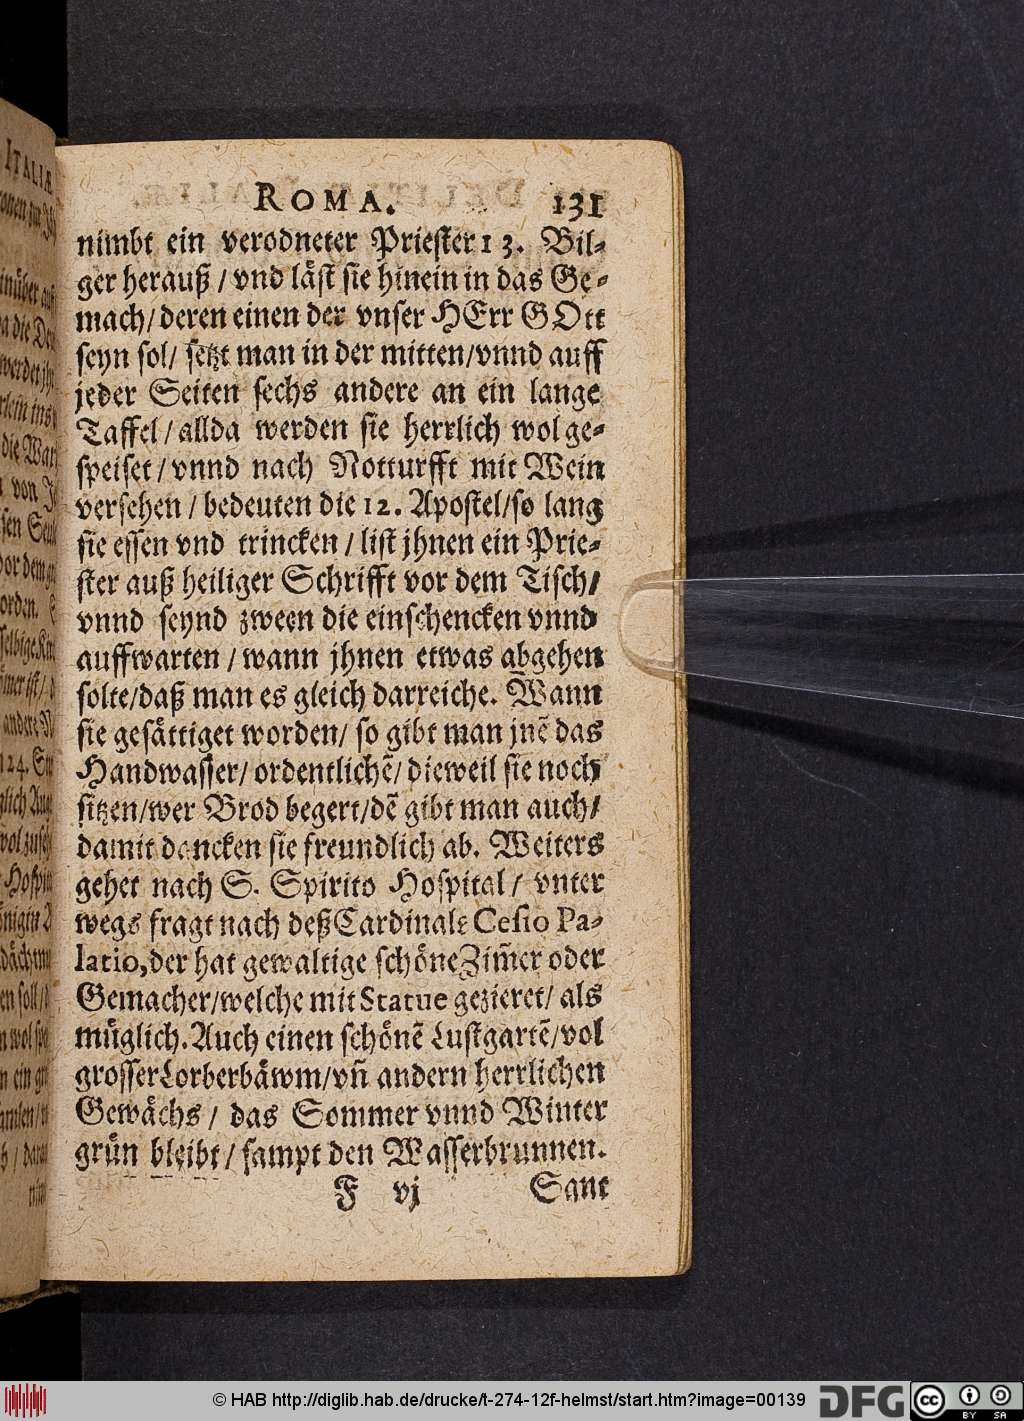 ROMA. 131
nimbt ein verodneter Priester 13. Bil-
ger herauß / vnd läst sie hinein in das Ge-
mach / deren einen der vnser HErr GOtt
seyn sol / setzt man in der mitten / vnnd auff
jeder Seiten sechs andere an ein lange
Taffel / allda werden sie herrlich wol ge-
speiset / vnnd nach Notturfft mit Wein
versehen / bedeuten die 12. Apostel / so lang
sie essen vnd trincken / list jhnen ein Prie-
ster auß heiliger Schrifft vor dem Tisch /
vnnd seynd zween die einschencken vnnd
auffwarten / wann jhnen etwas abgehen
solte / daß man es gleich darreiche. Wann
sie gesättiget worden / so gibt man jnē das
Handwasser / ordentlichē / dieweil sie noch
sitzen / wer Brod begert / dē gibt man auch /
damit dancken sie freundlich ab. Weiters
gehet nach S. Spirito Hospital / vnter
wegs fragt nach deß Cardinals Cesio Pa-
latio, der hat gewaltige schöne Zim̃er oder
Gemacher / welche mit Statue gezieret / als
müglich. Auch einen schönē Lustgartē / vol
grosser Lorberbäwm / vñ andern herrlichen
Gewächs / das Sommer vnnd Winter
grün bleibt / sampt den Wasserbrunnen.
F vj Sant
© HAB http://diglib.hab.de/drucke/t-274-12f-helmst/start.htm?image=00139
DFG
cc
BY SA